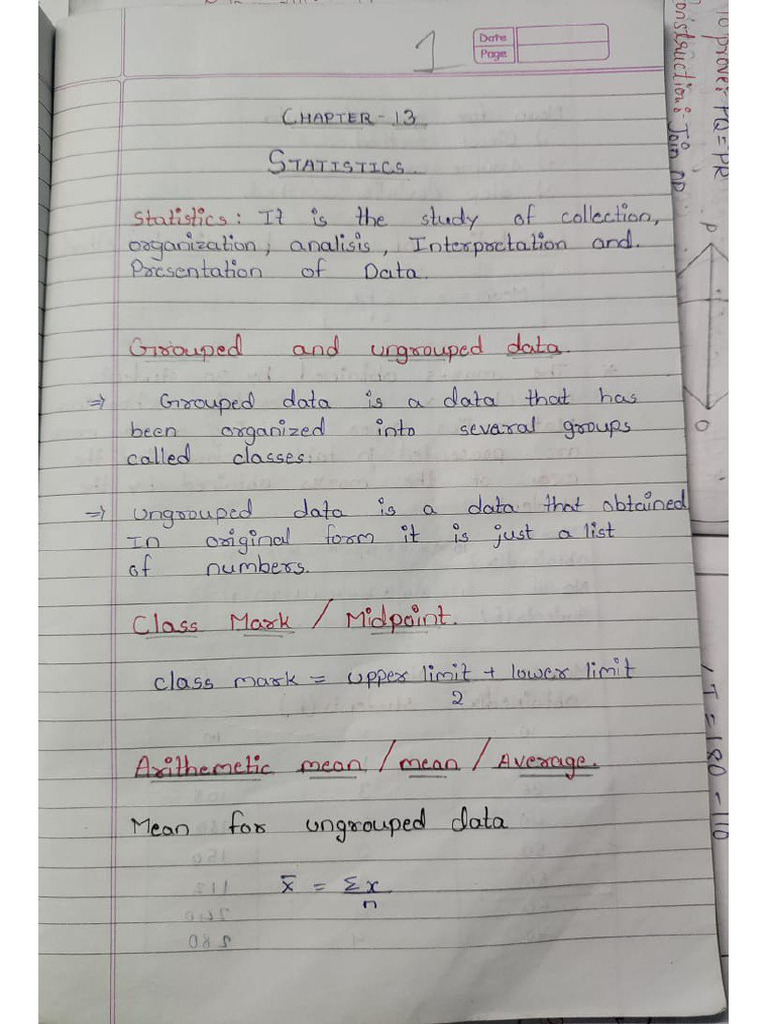 1
Date
Page
CHAPTER-13
STATISTICS.
Statistics: It is the study of collection,
organization, analisis, Interpretation and.
Presentation of Data.
Grouped and ungrouped data.
⇒ Grouped data is a data that has
been organized into several groups
called classes.
⇒ ungrouped data is a data that obtained
In original form it is just a list
of numbers.
Class Mark / Midpoint.
class mark = upper limit + lower limit
2
Arithemetic mean / mean / Average.
Mean for ungrouped data
x̄ = Σx
n
To prove:- PQ = PR
Construction:- Join OP
P
O
T = 180 - 110